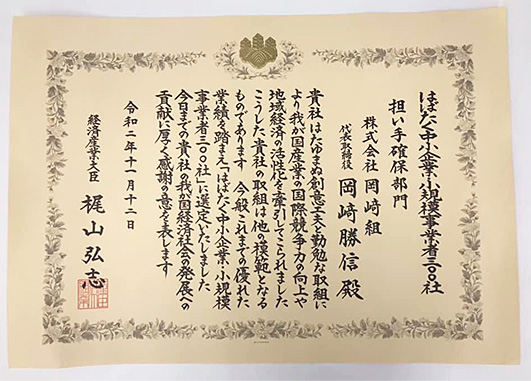 はばたく中小企業・小規模事業者三〇〇社
担い手確保部門
株式会社 岡﨑組
代表取締役 岡﨑勝信殿
貴社はたゆまぬ創意工夫と勤勉な取組に
より我が国産業の国際競争力の向上や
地域経済の活性化を牽引してこられました
こうした貴社の取組は他の模範となる
ものであります 今般これまでの優れた
業績を踏まえ「はばたく中小企業・小規模
事業者三〇〇社」に選定いたしました
今日までの貴社の我が国経済社会の発展への
貢献に厚く感謝の意を表します
令和二年十一月十二日
経済産業大臣 梶山弘志